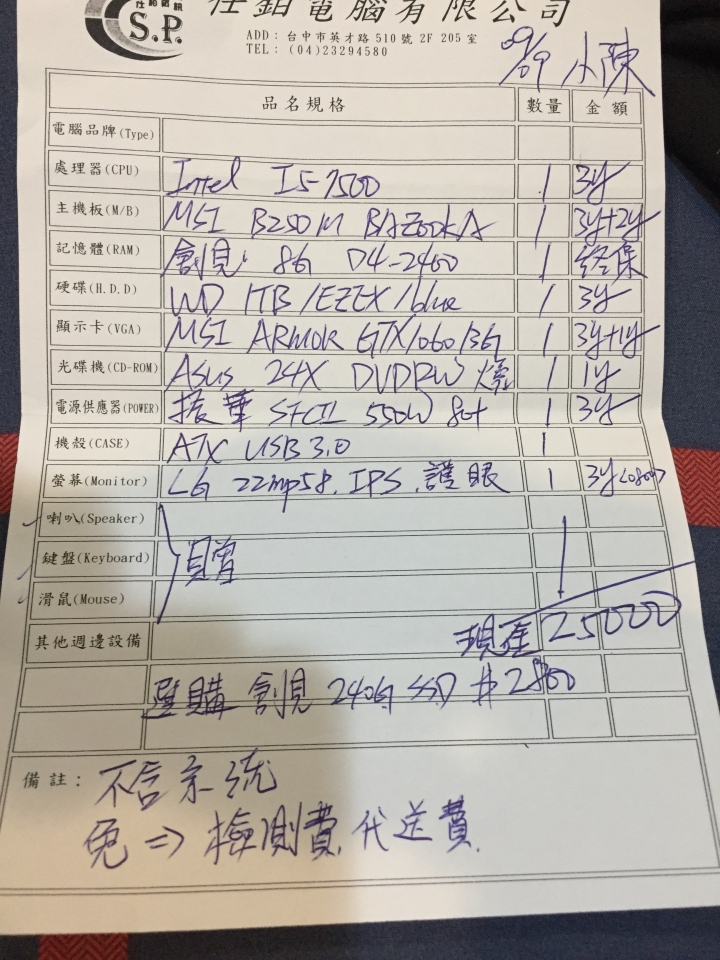 S.P.
任鉑電腦有限公司
ADD: 台中市英才路 510 號 2F 205 室
TEL: (04)23294580
09/09 小陳
品名規格 數量 金額
電腦品牌(Type)
處理器(CPU) Intel I5-7500 1 3y
主機板(M/B) MSI B250M BAZOOKA 1 3y+2y
記憶體(RAM) 創見 8G D4-2400 1 終保
硬碟(H.D.D) WD 1TB/EZEX/blue 1 3y
顯示卡(VGA) MSI ARMOR GTX1060/3G 1 3y+1y
光碟機(CD-ROM) ASUS 24X DVDRW 燒 1 1y
電源供應器(POWER) 振華 550W 80+ 1 3y
機殼(CASE) ATX USB 3.0 1
螢幕(Monitor) LG 22mp58. IPS. 護眼 1 3y
喇叭(Speaker)
鍵盤(Keyboard) 贈
滑鼠(Mouse)
其他週邊設備 現金 25000
選購 創見 240G SSD # 2800
備註: 不含系統
免 => 檢測費. 代送費.